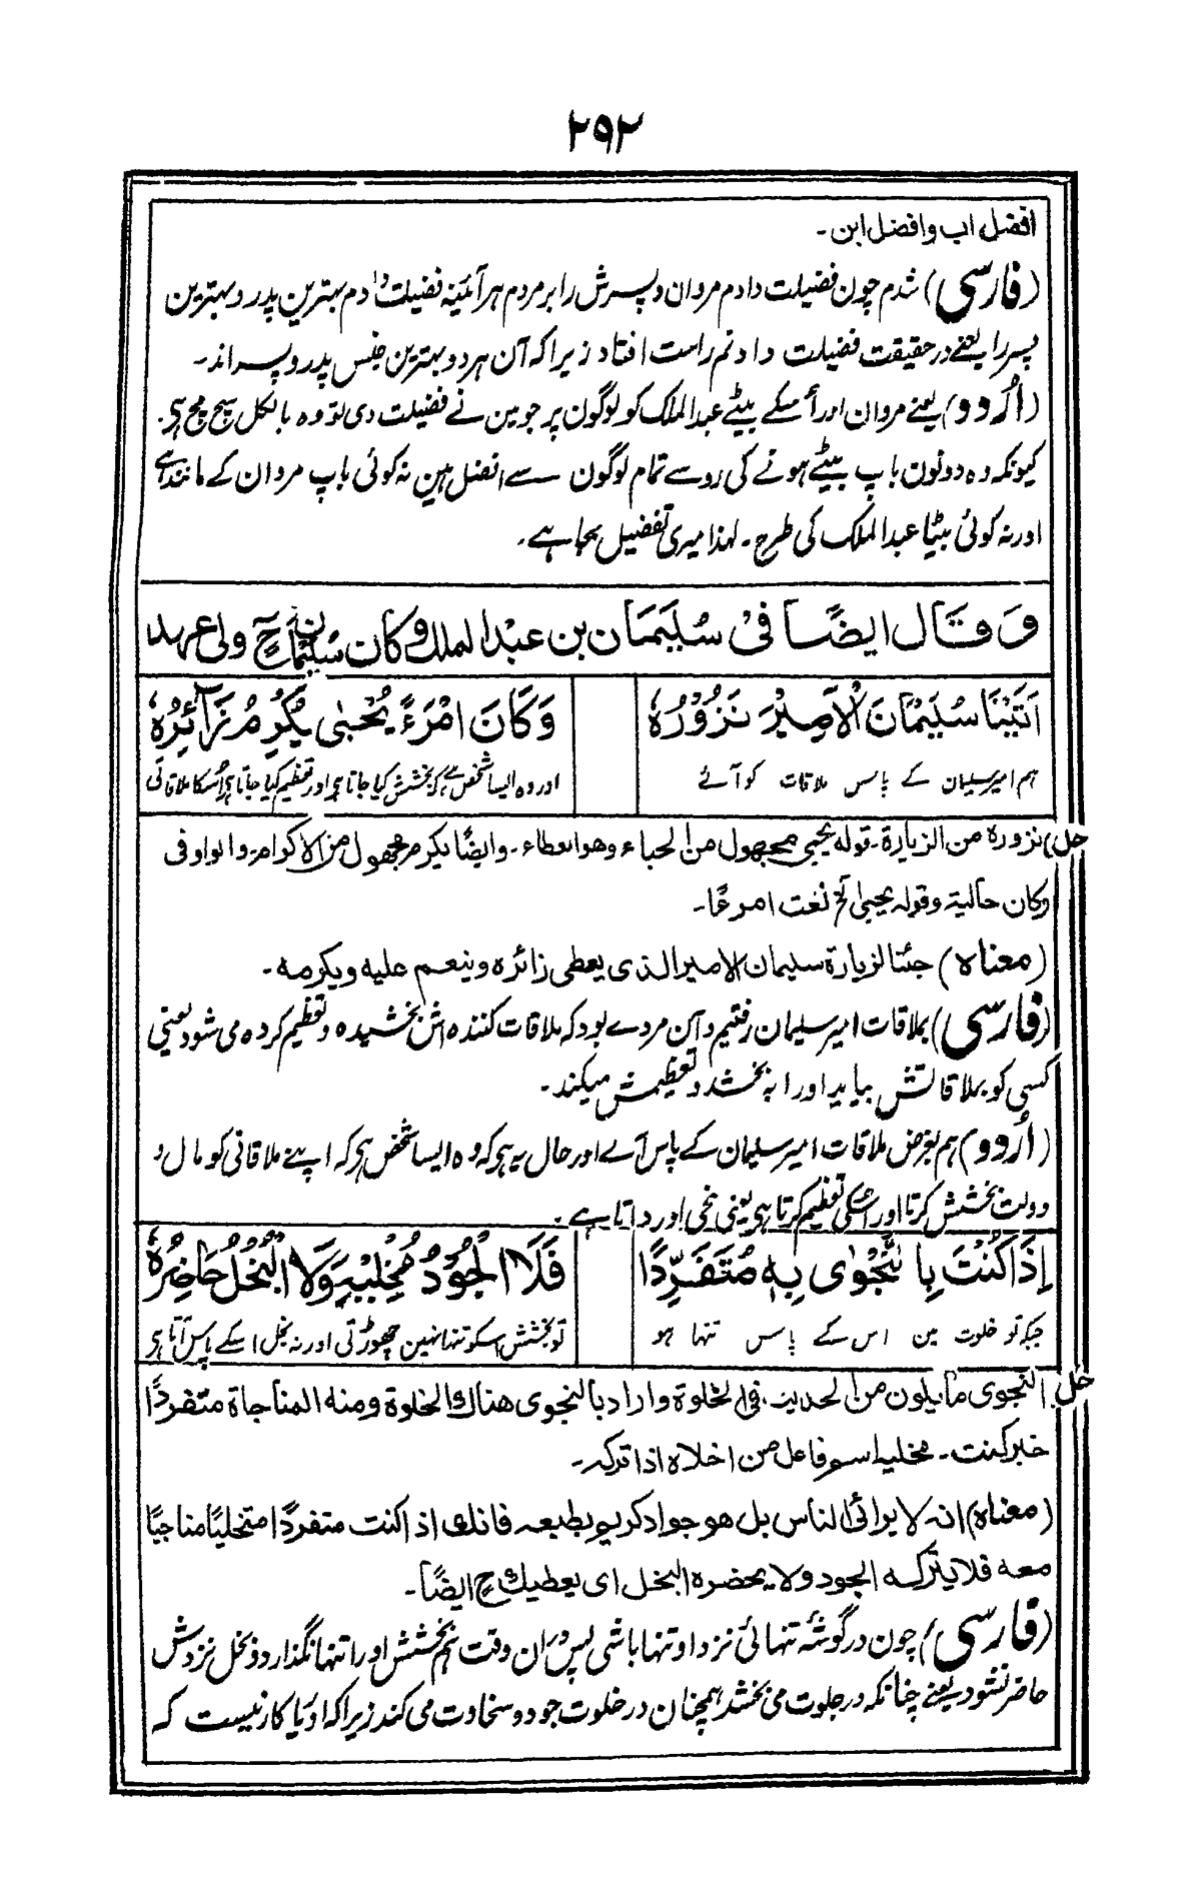 ۲۹۲
افضل اب وافضل ابن۔
(فارسی) شدم چون فضیلت دادم مروان و پسرش را بر مردم ہر آئینہ فضیلت دادم بہترین پدر و بہترین
پسر را یعنے در حقیقت فضیلت دادنم راست افتاد زیرا کہ آن ہر دو بہترین جنس پدر و پسر اند۔
(اُردو) یعنے مروان اور اُسکے بیٹے عبدالملک کو لوگون پر جو مین نے فضیلت دی تو وہ بالکل سچ مچ ہی۔
کیونکہ وہ دونون باپ بیٹے ہونے کی رو سے تمام لوگون سے افضل ہین نہ کوئی باپ مروان کے مانند ہے
اور نہ کوئی بیٹا عبدالملک کی طرح۔ لہذا میری تفضیل بجا ہے۔
وَقَالَ ايضًا فِیْ سُلَيمَان بن عبْد الملك وكان سُلَيْمَانُ حٍ ولی عہد
اَتَيْنَا سُلَيْمَانَ الْاَمِيْرَ نَزُوْرُهٗ
وَكَانَ امْرَءً يُحْبٰى يُكْرَمُ زَائِرُهٗ
ہم امیر سلیمان کے پاس ملاقات کو آئے
اور وہ ایسا شخص ہے کہ بخشش کیا جاتا ہی اور تعظیم کیا جاتا ہی اُسکا ملاقاتی
حل) نزوره من الزيارة۔ قوله يحبى مجهول من الحباء وهو العطاء۔ وايضًا يكرم مجهول من الاكرام والواو فی
وكان حالية وقوله يحبى الخ نعت امرءًا۔
(معناه) جئنا لزيارة سليمان الامير الذى يعطى زائره وينعم عليه ويكرمه۔
(فارسی) بملاقات امیر سلیمان رفتیم و آن مردے بود کہ ملاقات کنندہ اش بخشیدہ و تعظیم کردہ می شود یعنی
کسی کو بملاقاتش بیاید اورا بہ بخشد و تعظیمش میکند۔
(اُردو) ہم بغرض ملاقات امیر سلیمان کے پاس آے اور حال یہ ہی کہ وہ ایسا شخص ہی کہ اپنے ملاقاتی کو مال و
دولت بخشش کرتا اور اُسکی تعظیم کرتا ہی یعنی سخی اور داتا ہے۔
اِذَا كُنْتَ بِالنَّجْوٰى بِهٖ مُتَفَرِّدًا
فَلَا الْجُوْدُ مُخْلِيْهِ وَلَا الْبُخْلُ حَاضِرُهٗ
جبکہ تو خلوت مین اس کے پاس تنہا ہو
تو بخشش اسکو تنہا نہین چھوڑتی اور نہ بخل اسکے پاس آتا ہی
حل) النجوى ما يكون من الحديث فى الخلوة واراد بالنجوى هناك الخلوة ومنه المناجاة متفردًا
خبر كنت۔ مخليه اسم فاعل من اخلاه اذا تركه۔
(معناه) انه لا يرائى الناس بل هو جواد كريم بطبعه فانك اذا كنت متفردًا متخليًا مناجيًا
معه فلا يتركه الجود ولا يحضره البخل اى يعطيك ح ايضًا۔
(فارسی) چون در گوشۂ تنہائی نزد او تنہا باشی پس دران وقت ہم بخشش اورا تنہا نگذارد و بخل نزدش
حاضر نشود یعنے چنانکہ در جلوت می بخشد ہمچنان در خلوت جود و سخاوت می کند زیرا کہ او ریا کار نیست کہ